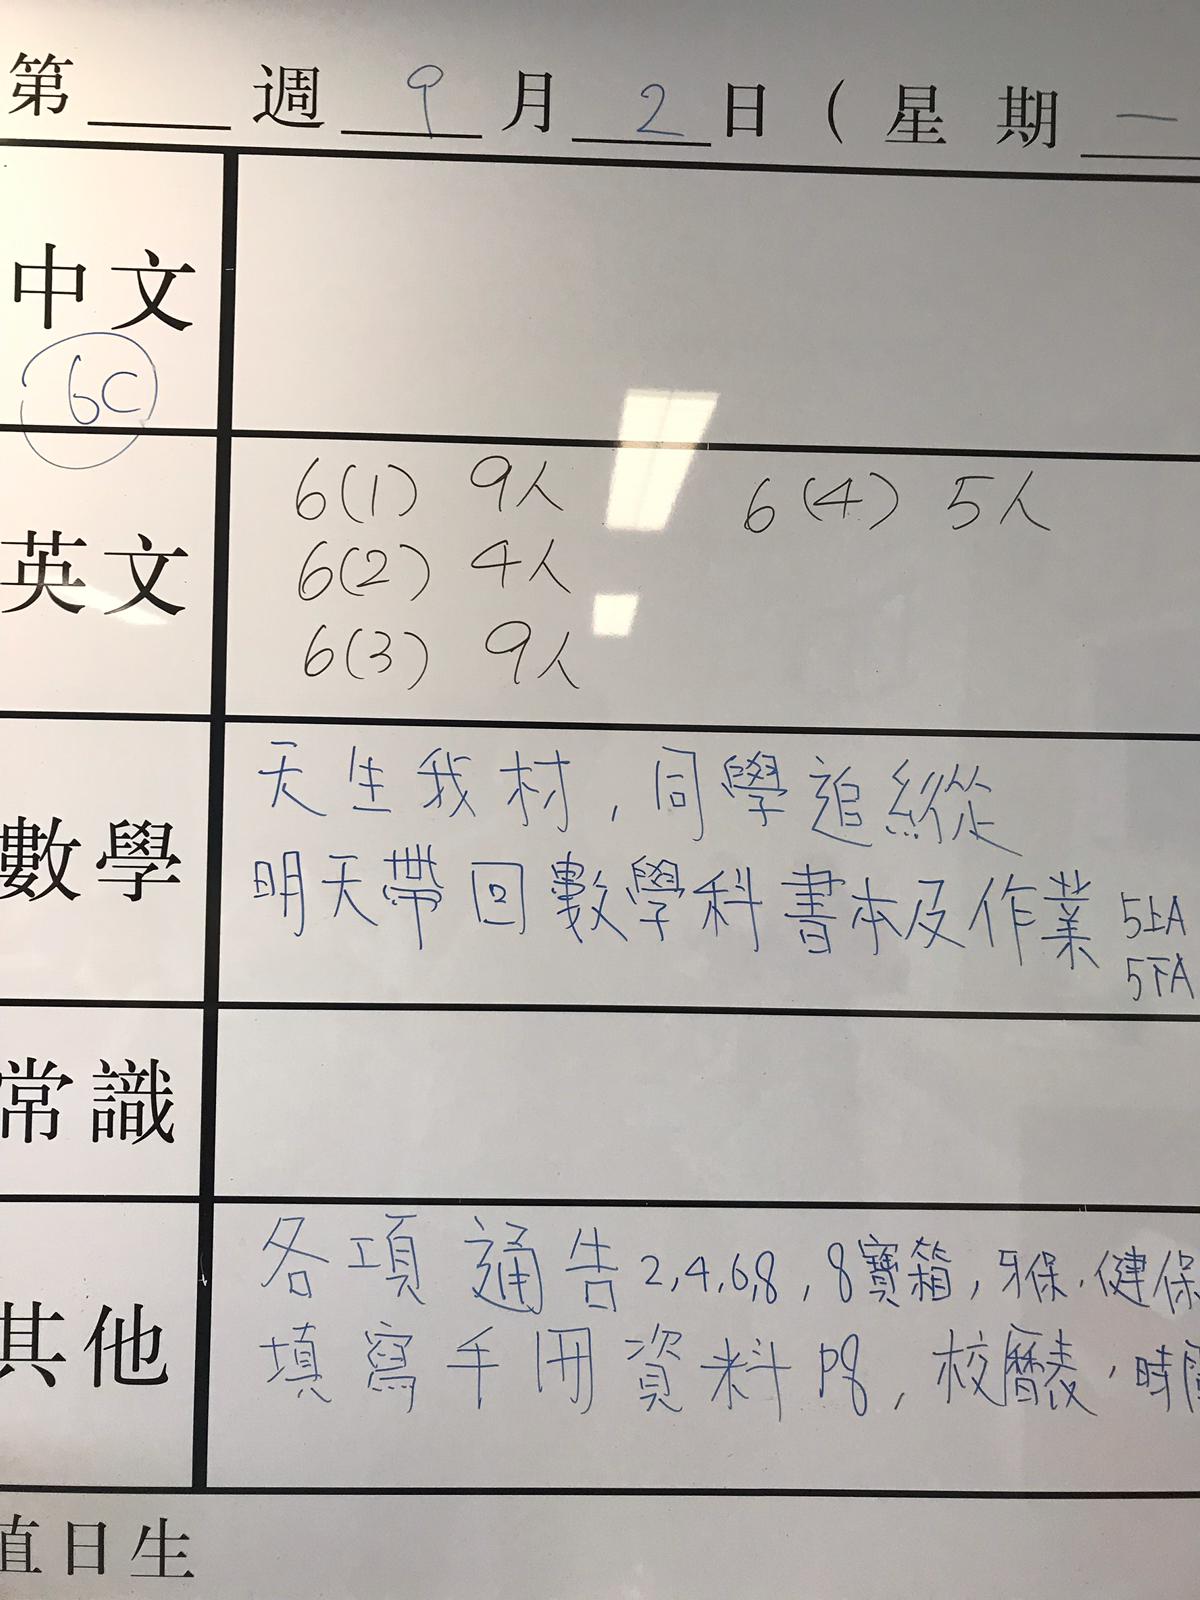 第 週 9 月 2 日 ( 星 期 一
中文
6C
英文
6(1) 9人 6(4) 5人
6(2) 4人
6(3) 9人
數學
天生我材，同學追縱
明天帶回數學科書本及作業 5上A
5下A
常識
其他
各項通告 2,4,6,8，8寶箱，牙保，健保
填寫手冊資料 P8，校曆表，時間
值日生